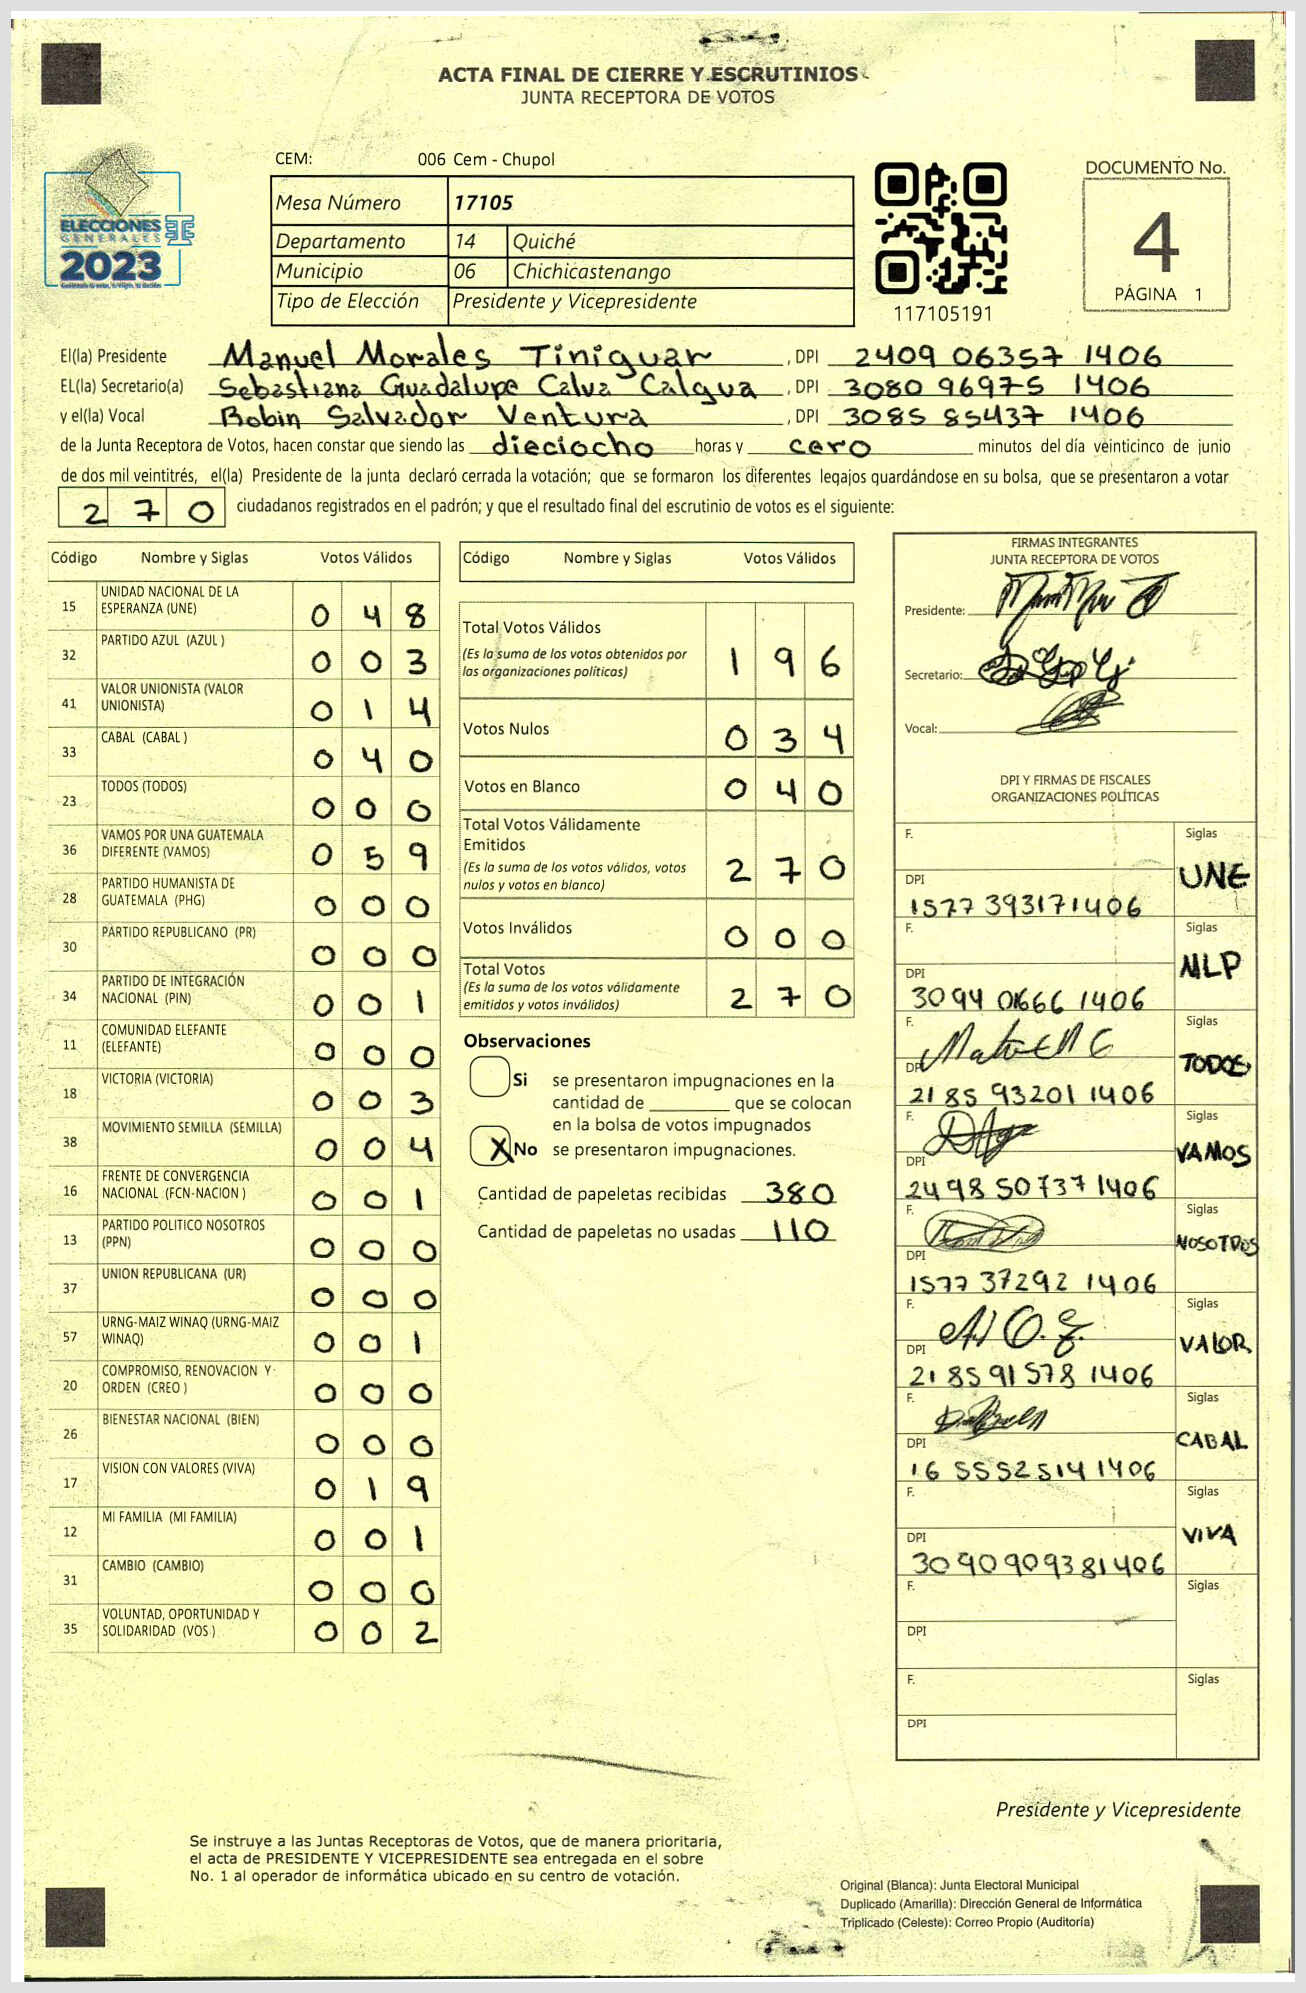 ACTA FINAL DE CIERRE Y ESCRUTINIOS
JUNTA RECEPTORA DE VOTOS
CEM: 006 Cem - Chupol
DOCUMENTO No.
4
PÁGINA 1
ELECCIONES
GENERALES
2023
Mesa Número 17105
Departamento 14 Quiché
Municipio 06 Chichicastenango
Tipo de Elección Presidente y Vicepresidente
117105191
El(la) Presidente Manuel Morales Tiniguar, DPI 2409 06357 1406
EL(la) Secretario(a) Sebastiana Guadalupe Calva Calgua, DPI 3080 96975 1406
y el(la) Vocal Robin Salvador Ventura, DPI 3085 85437 1406
de la Junta Receptora de Votos, hacen constar que siendo las dieciocho horas y cero minutos del día veinticinco de junio
de dos mil veintitrés, el(la) Presidente de la junta declaró cerrada la votación; que se formaron los diferentes legajos guardándose en su bolsa, que se presentaron a votar
2 7 0 ciudadanos registrados en el padrón; y que el resultado final del escrutinio de votos es el siguiente:
Código Nombre y Siglas Votos Válidos
15 UNIDAD NACIONAL DE LA ESPERANZA (UNE) 0 4 8
32 PARTIDO AZUL (AZUL ) 0 0 3
41 VALOR UNIONISTA (VALOR UNIONISTA) 0 1 4
33 CABAL (CABAL ) 0 4 0
23 TODOS (TODOS) 0 0 0
36 VAMOS POR UNA GUATEMALA DIFERENTE (VAMOS) 0 5 9
28 PARTIDO HUMANISTA DE GUATEMALA (PHG) 0 0 0
30 PARTIDO REPUBLICANO (PR) 0 0 0
34 PARTIDO DE INTEGRACIÓN NACIONAL (PIN) 0 0 1
11 COMUNIDAD ELEFANTE (ELEFANTE) 0 0 0
18 VICTORIA (VICTORIA) 0 0 3
38 MOVIMIENTO SEMILLA (SEMILLA) 0 0 4
16 FRENTE DE CONVERGENCIA NACIONAL (FCN-NACION ) 0 0 1
13 PARTIDO POLITICO NOSOTROS (PPN) 0 0 0
37 UNION REPUBLICANA (UR) 0 0 0
57 URNG-MAIZ WINAQ (URNG-MAIZ WINAQ) 0 0 1
20 COMPROMISO, RENOVACION Y ORDEN (CREO ) 0 0 0
26 BIENESTAR NACIONAL (BIEN) 0 0 0
17 VISION CON VALORES (VIVA) 0 1 9
12 MI FAMILIA (MI FAMILIA) 0 0 1
31 CAMBIO (CAMBIO) 0 0 0
35 VOLUNTAD, OPORTUNIDAD Y SOLIDARIDAD (VOS ) 0 0 2
Código Nombre y Siglas Votos Válidos
Total Votos Válidos 1 9 6
(Es la suma de los votos obtenidos por
las organizaciones políticas)
Votos Nulos 0 3 4
Votos en Blanco 0 4 0
Total Votos Válidamente
Emitidos 2 7 0
(Es la suma de los votos válidos, votos
nulos y votos en blanco)
Votos Inválidos 0 0 0
Total Votos
(Es la suma de los votos válidamente
emitidos y votos inválidos) 2 7 0
Observaciones
Si se presentaron impugnaciones en la
cantidad de ________ que se colocan
en la bolsa de votos impugnados
X No se presentaron impugnaciones.
Cantidad de papeletas recibidas 380
Cantidad de papeletas no usadas 110
FIRMAS INTEGRANTES
JUNTA RECEPTORA DE VOTOS
Presidente:
Secretario:
Vocal:
DPI Y FIRMAS DE FISCALES
ORGANIZACIONES POLÍTICAS
F. Siglas
UNE
DPI
1577 39317 1406
F. Siglas
MLP
DPI
3094 01666 1406
F. Siglas
TODOS
DPI
2185 93201 1406
F. Siglas
VAMOS
DPI
2498 50737 1406
F. Siglas
NOSOTROS
DPI
1577 37292 1406
F. Siglas
VALOR
DPI
2185 91578 1406
F. Siglas
CABAL
DPI
16 55525141406
F. Siglas
VIVA
DPI
3090909381406
F. Siglas
DPI
F. Siglas
DPI
Presidente y Vicepresidente
Se instruye a las Juntas Receptoras de Votos, que de manera prioritaria,
el acta de PRESIDENTE Y VICEPRESIDENTE sea entregada en el sobre
No. 1 al operador de informática ubicado en su centro de votación.
Original (Blanca): Junta Electoral Municipal
Duplicado (Amarilla): Dirección General de Informática
Triplicado (Celeste): Correo Propio (Auditoría)